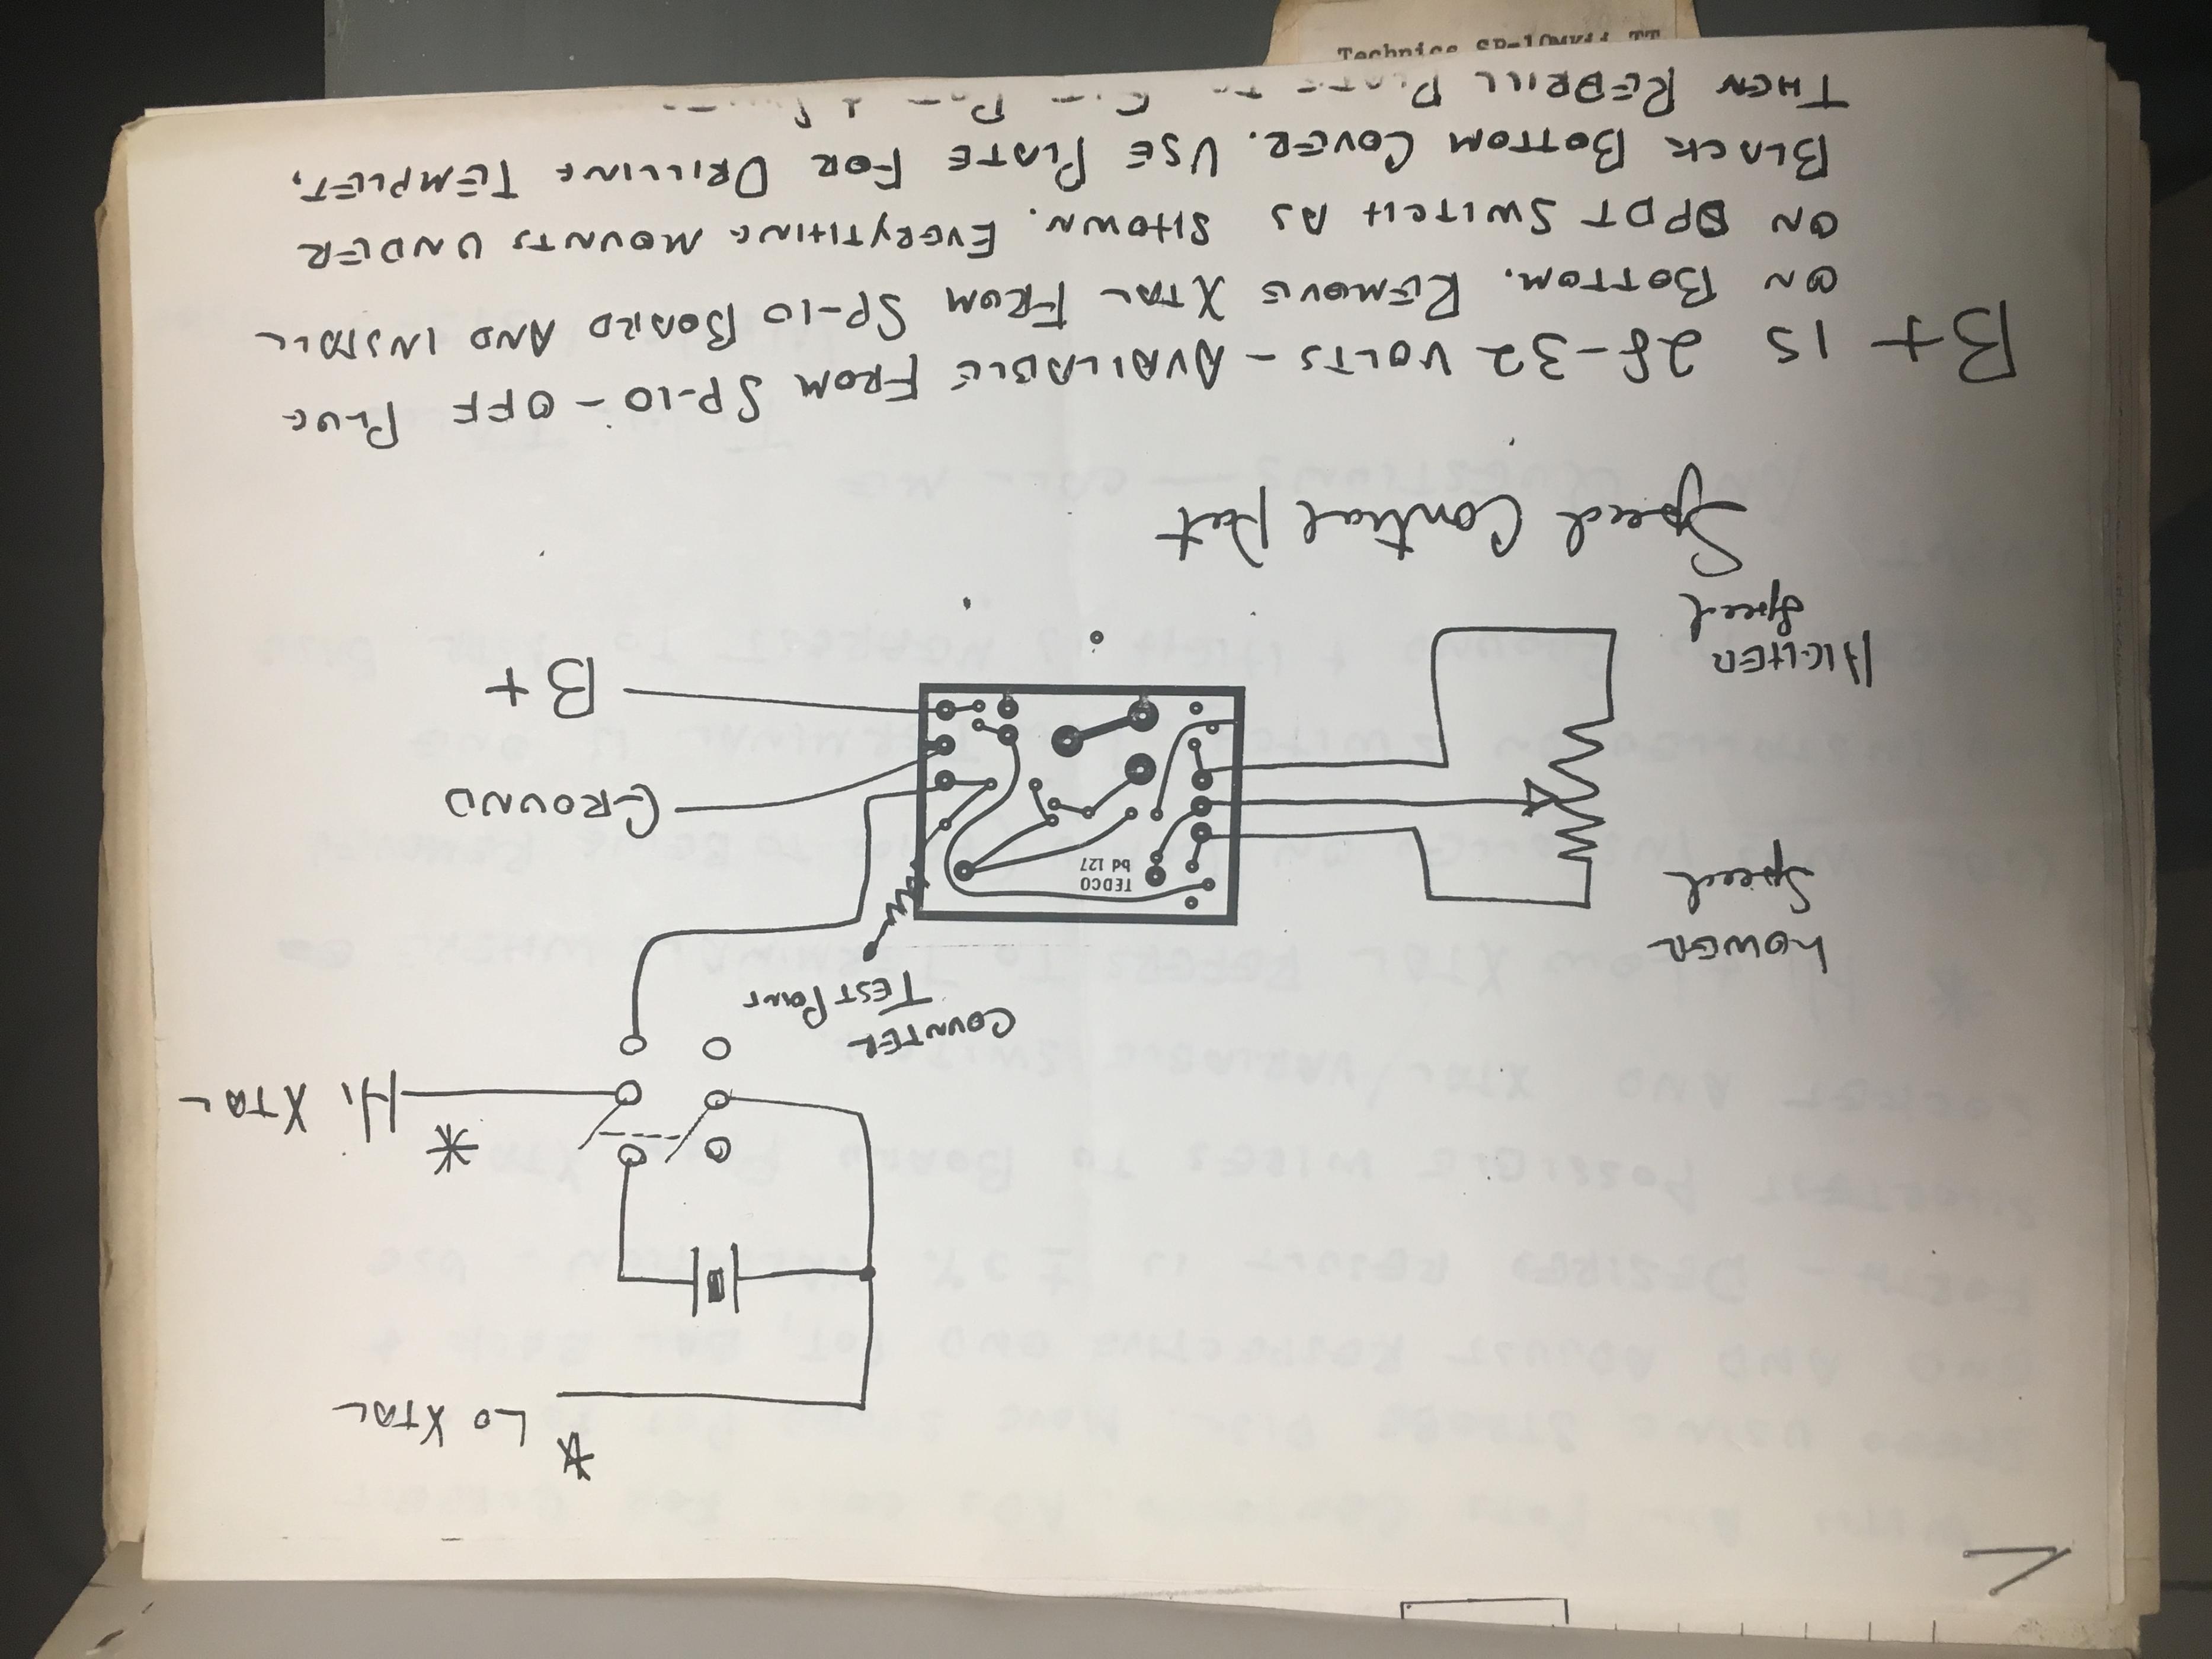 LO XTAL
*
HI XTAL
*
COUNTER
TEST POINT
LOWER
SPEED
TEDCO
bd 127
GROUND
B+
HIGHER
Speed
Speed Control Pot
B+ IS 28-32 VOLTS - AVAILABLE FROM SP-10 - OFF PLUG
ON BOTTOM. REMOVE XTAL FROM SP-10 BOARD AND INSTALL
ON DPDT SWITCH AS SHOWN. EVERYTHING MOUNTS UNDER
BLACK BOTTOM COVER. USE PLATE FOR DRILLING TEMPLET,
THEN REDRILL
Technics SP-10MKii TT